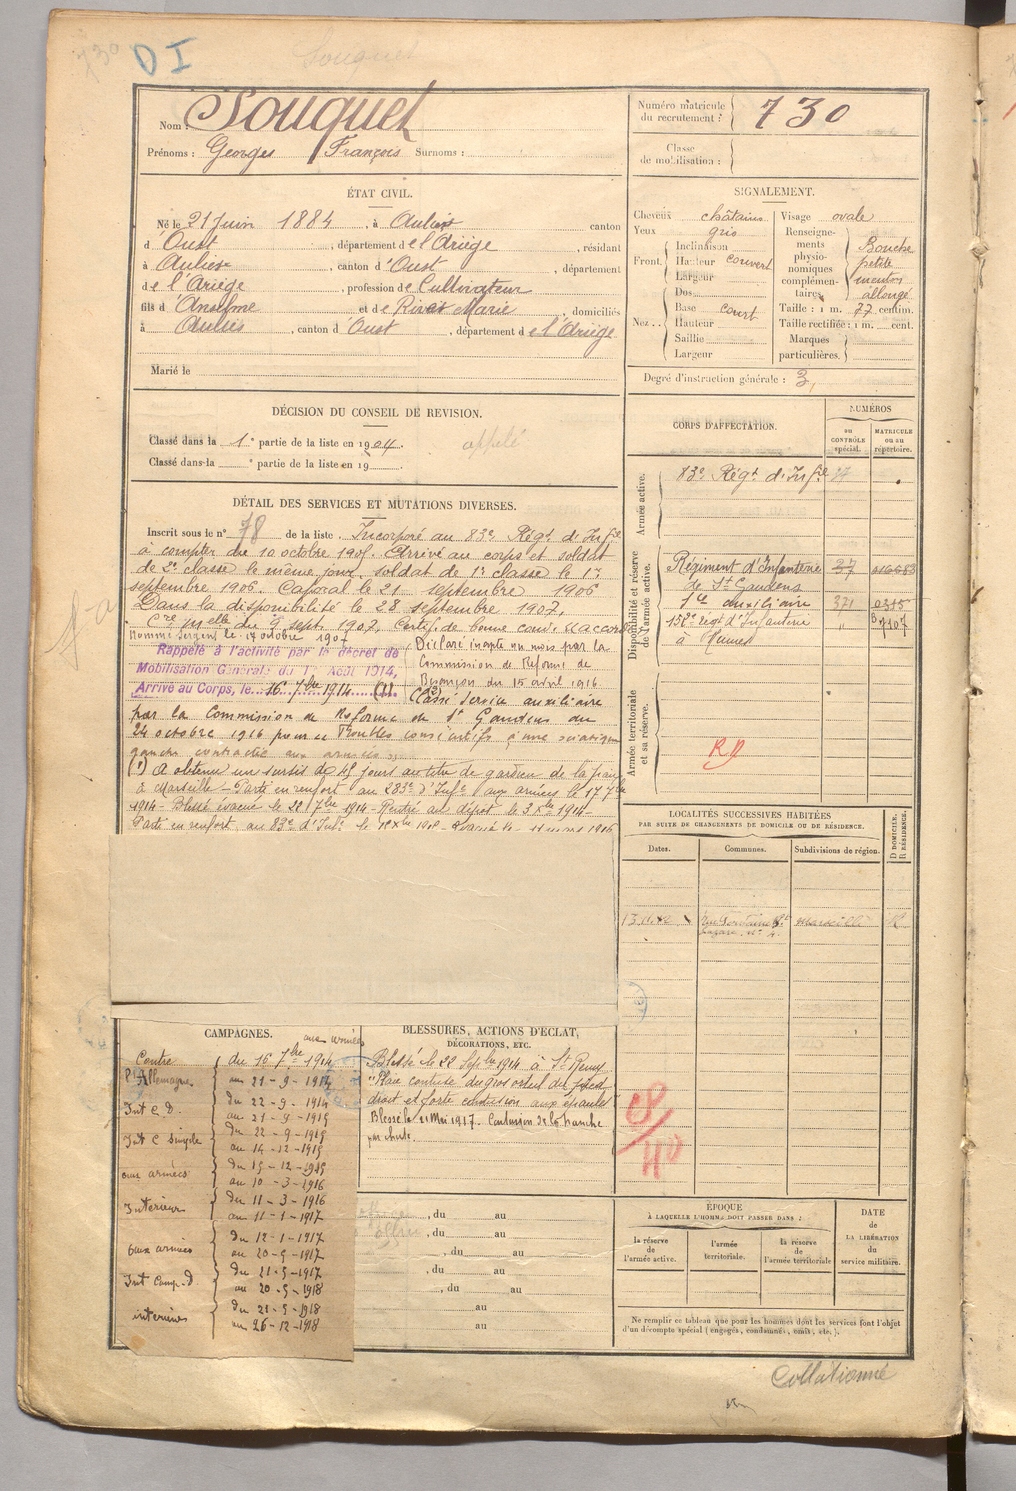 730
D I
Souquet
Nom : Souquet
Prénoms : Georges François Surnoms :
Numéro matricule du recrutement : 730
Classe de mobilisation :
ÉTAT CIVIL.
Né le 21 Juin 1884, à Aulus canton
d'Oust, département de l'Ariège, résidant
à Aulus, canton d'Oust, département
de l'Ariège, profession de Cultivateur
fils d'Anselme et de Rivat Marie, domiciliés
à Aulus, canton d'Oust, département de l'Ariège
Marié le
SIGNALEMENT.
Cheveux châtains
Yeux gris
Front Inclinaison
Hauteur couvert
Largeur
Nez Dos
Base court
Hauteur
Saillie
Largeur
Visage ovale
Renseignements physionomiques complémentaires Bouche petite menton allongé
Taille : 1 m. 77 centim.
Taille rectifiée : 1 m. cent.
Marques particulières.
Degré d'instruction générale : 3
DÉCISION DU CONSEIL DE REVISION.
Classé dans la 1e partie de la liste en 1904. appelé
Classé dans la e partie de la liste en 19
DÉTAIL DES SERVICES ET MUTATIONS DIVERSES.
Inscrit sous le n° 78 de la liste. Incorporé au 83e Régt d'Infie
à compter du 10 octobre 1905. Arrivé au corps et soldat
de 2e classe le même jour, soldat de 1e classe le 1er
septembre 1906. Caporal le 21 septembre 1906
Dans la disponibilité le 28 septembre 1907.
Cre melle du 9 sept. 1907. Certif. de bonne conde accordé
Nommé Sergent le 17 octobre 1907
Rappelé à l'activité par le décret de
Mobilisation Générale du 1er Août 1914,
Arrivé au Corps, le 16 7bre 1914 (1).
Déclaré inapte un mois par la
Commission de Réforme de
Besançon du 15 avril 1916
(2) Classé Service auxiliaire
par la Commission de Réforme de St Gaudens du
24 octobre 1916 pour "Troubles consécutifs à une sciatique
gauche contractée aux armées"
(1) A obtenu un sursis de 45 jours au titre de gardien de la paix
à Marseille - Parti en renfort au 283e d'Infie aux armées le 17 7bre
1914 - Blessé évacué le 22 7bre 1914 - Rentré au dépôt le 3 Xbre 1914 -
Parti en renfort au 83e d'Infie le 15 Xbre 1915 - Evacué le 11 mars 1916
CORPS D'AFFECTATION.
NUMÉROS
au contrôle spécial.
matricule ou au répertoire.
Armée active.
83e Régt d'Infie
Disponibilité et réserve de l'armée active.
Régiment d'Infanterie 37
de St Gaudens
auxiliaire 371 0315
régt d'Infanterie
Armée territoriale et sa réserve.
RD
LOCALITÉS SUCCESSIVES HABITÉES
PAR SUITE DE CHANGEMENTS DE DOMICILE OU DE RÉSIDENCE.
Dates. Communes. Subdivisions de région. D DOMICILE. R RÉSIDENCE.
Marseille R
CAMPAGNES.
Contre l'Allemagne
aux armées
du 16 7bre 1914
au 21-9-1914
Int C D.
du 22-9-1914
au 21-9-1915
Int C Simple
du 22-9-1915
au 14-12-1915
aux armées
du 15-12-1915
au 10-3-1916
Intérieur
du 11-3-1916
au 11-1-1917
aux armées
du 12-1-1917
au 20-5-1917
Int Camp. D.
du 21-5-1917
au 20-5-1918
intérieur
du 21-5-1918
au 26-12-1918
BLESSURES, ACTIONS D'ÉCLAT,
DÉCORATIONS, ETC.
Blessé le 22 Sepbre 1914 à St Remy
"Plaie contuse du gros orteil du pied
droit et forte contusion aux épaules
Blessé le 21 Mai 1917. Contusion de la hanche
par chute.
, du au
, du au
, du au
, du au
, du au
au
au
ÉPOQUE
À LAQUELLE L'HOMME DOIT PASSER DANS :
la réserve de l'armée active.
l'armée territoriale.
la réserve de l'armée territoriale
DATE de LA LIBÉRATION du service militaire.
Ne remplir ce tableau que pour les hommes dont les services font l'objet
d'un décompte spécial (engagés, condamnés, omis, etc.).
Collationné